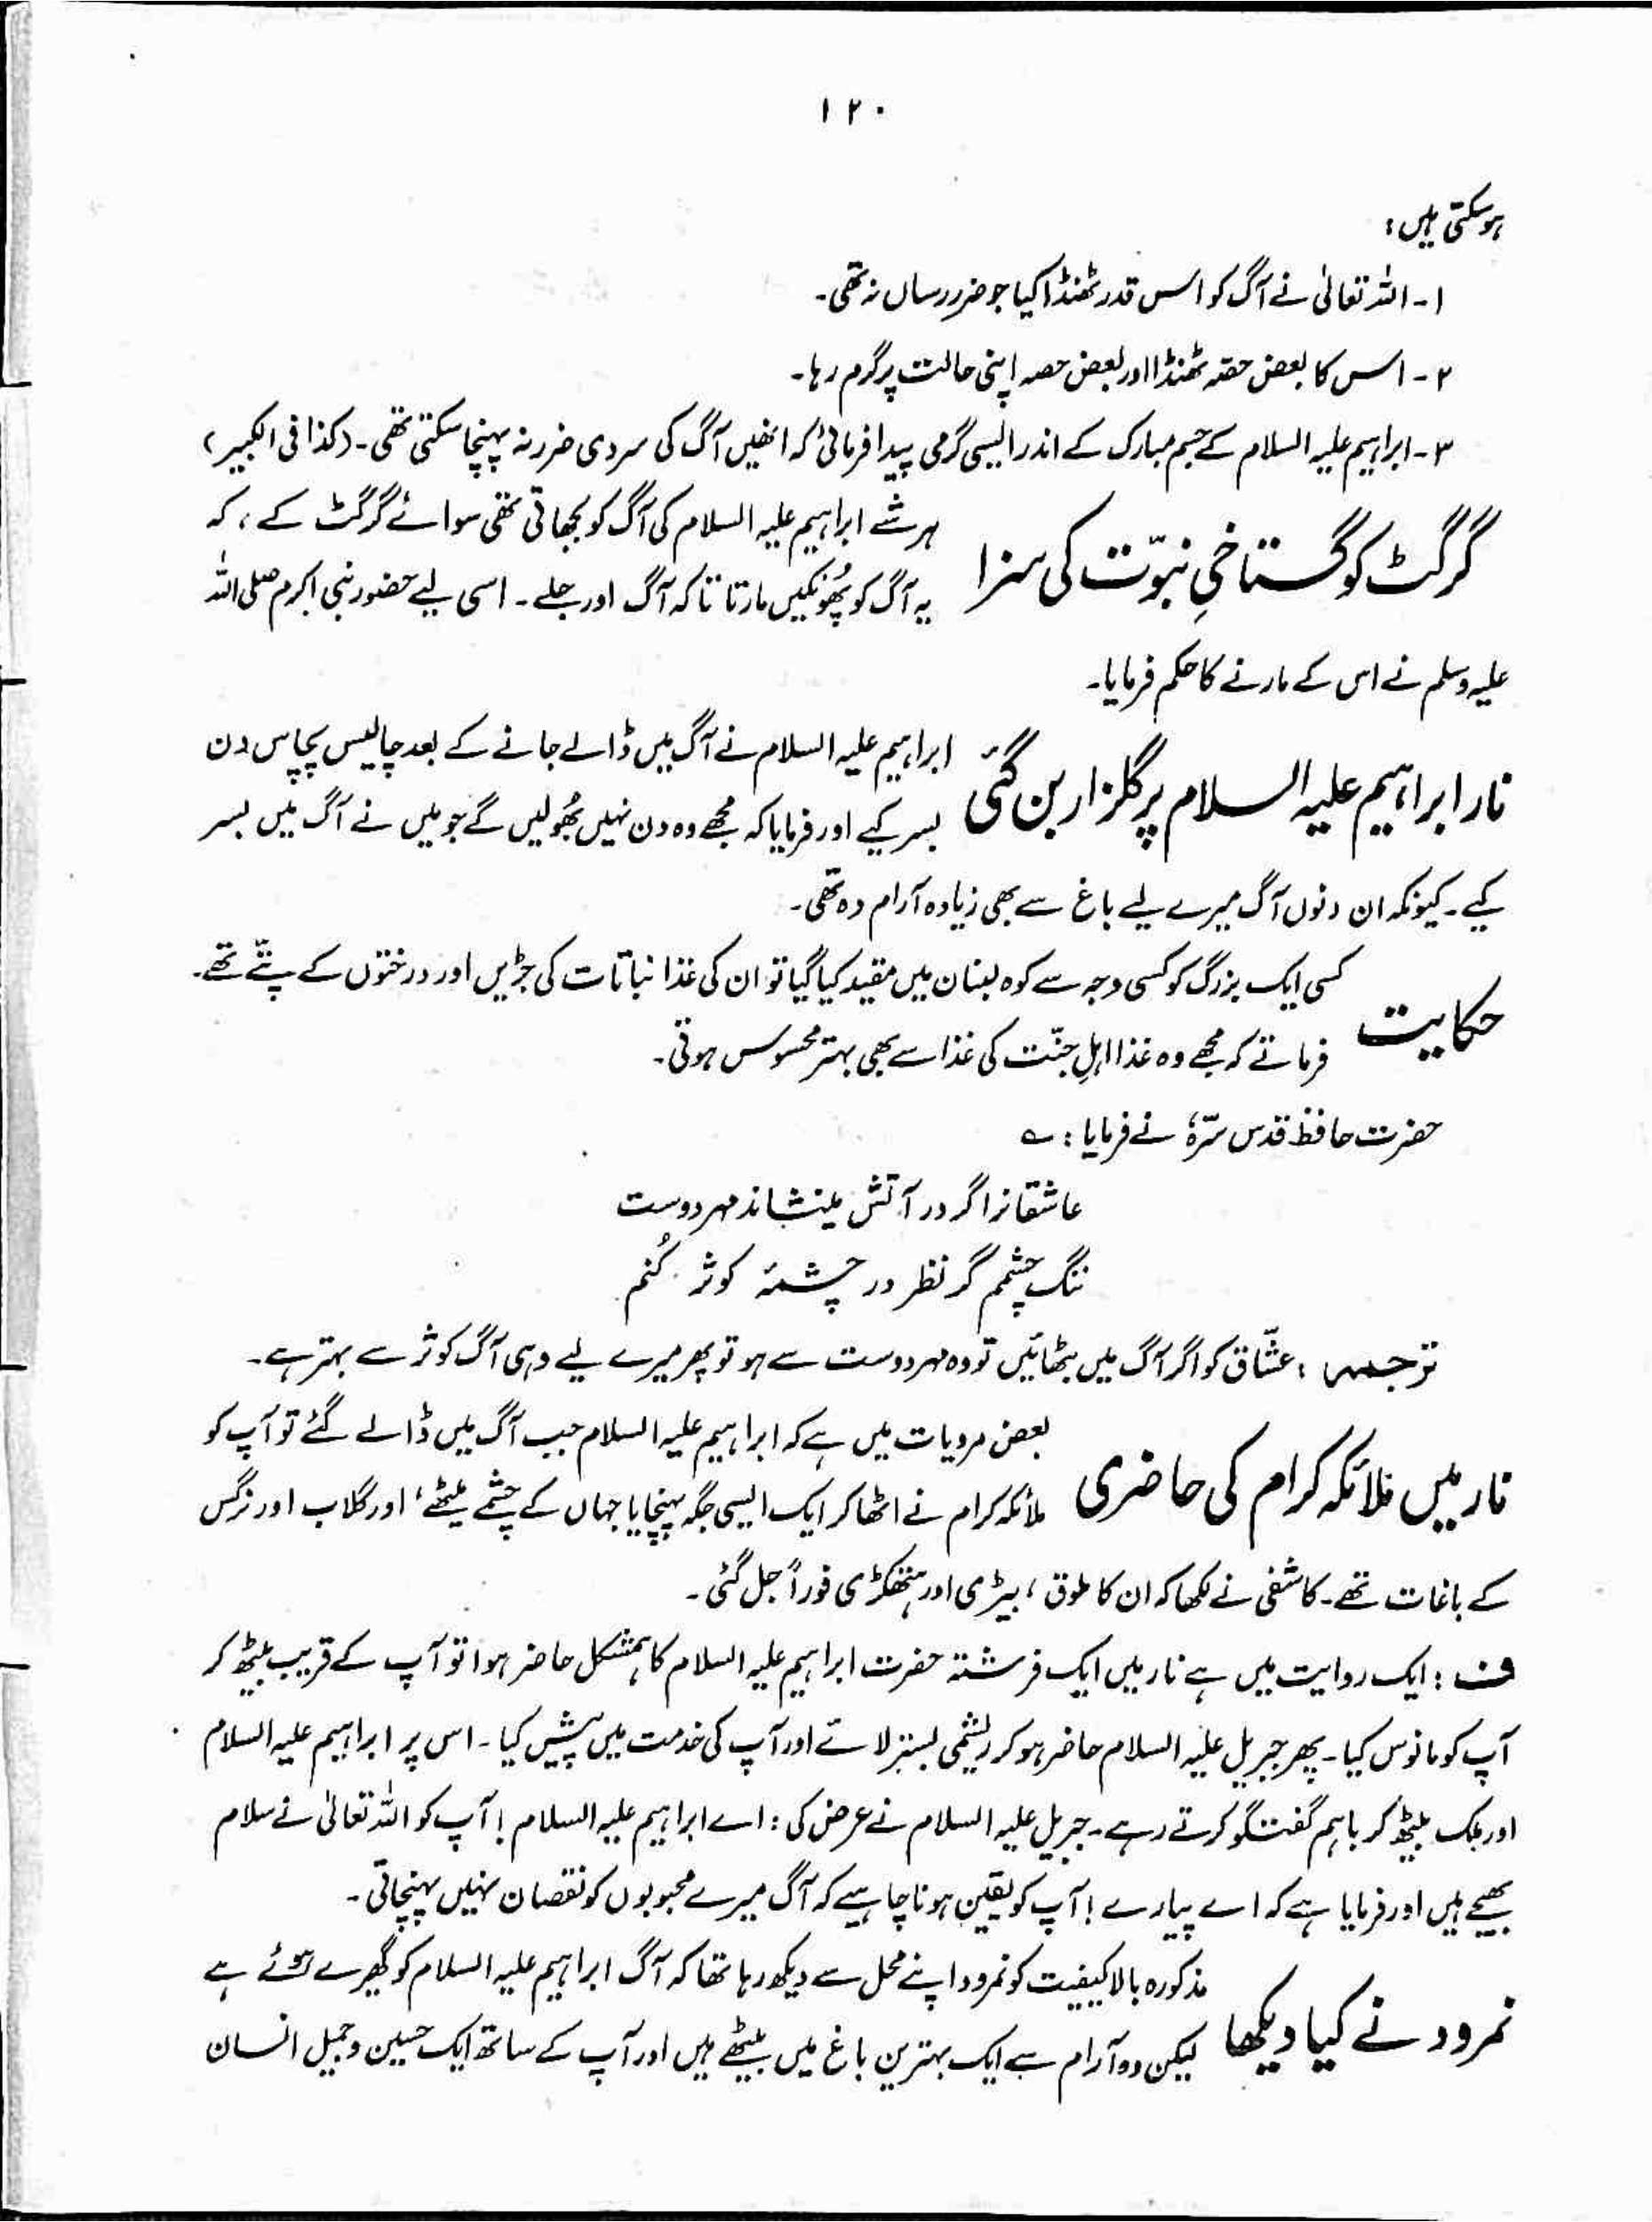 ۱۲۰
ہوسکتی ہیں:
۱- اللہ تعالیٰ نے آگ کو اس قدر ٹھنڈا کیا جو ضرر رساں نہ تھی۔
۲- اس کا بعض حصہ ٹھنڈا اور بعض حصہ اپنی حالت پر گرم رہا۔
۳- ابراہیم علیہ السلام کے جسم مبارک کے اندر ایسی گرمی پیدا فرمائی کہ انھیں آگ کی سردی ضرر نہ پہنچا سکتی تھی۔ (کذا فی الکبیر)
گرگٹ کو گستاخیِ نبوّت کی سزا
ہر شے ابراہیم علیہ السلام کی آگ کو بجھاتی تھی سوائے گرگٹ کے، کہ
یہ آگ کو پُھونکیں مارتا تاکہ آگ اور جلے۔ اسی لیے حضور نبی اکرم صلی اللہ
علیہ وسلم نے اس کے مارنے کا حکم فرمایا۔
نار ابراہیم علیہ السلام پر گلزار بن گئی
ابراہیم علیہ السلام نے آگ میں ڈالے جانے کے بعد چالیس پچاس دن
بسر کیے اور فرمایا کہ مجھے وہ دن نہیں بُھولیں گے جو میں نے آگ میں بسر
کیے۔ کیونکہ ان دنوں آگ میرے لیے باغ سے بھی زیادہ آرام دہ تھی۔
حکایت
کسی ایک بزرگ کو کسی وجہ سے کوہ لبنان میں مقید کیا گیا تو ان کی غذا نباتات کی جڑیں اور درختوں کے پتّے تھے۔
فرماتے کہ مجھے وہ غذا اہلِ جنّت کی غذا سے بھی بہتر محسوس ہوتی۔
حضرت حافظ قدس سرّہٗ نے فرمایا: ؎
عاشقانرا گر در آتش مینشاند مہر دوست
تنگ چشمم گر نظر در چشمۂ کوثر کُنم
ترجمہ: عشّاق کو اگر آگ میں بٹھائیں تو وہ مہر دوست سے ہو تو پھر میرے لیے وہی آگ کوثر سے بہتر ہے۔
نار میں ملائکہ کرام کی حاضری
بعض مرویات میں ہے کہ ابراہیم علیہ السلام جب آگ میں ڈالے گئے تو آپ کو
ملائکہ کرام نے اٹھا کر ایک ایسی جگہ پہنچایا جہاں کے چشمے میٹھے، اور گلاب اور نرگس
کے باغات تھے۔ کاشفی نے لکھا کہ ان کا طوق، بیڑی اور ہتھکڑی فوراً جل گئی۔
ف: ایک روایت میں ہے نار میں ایک فرشتہ حضرت ابراہیم علیہ السلام کا ہمشکل حاضر ہوا تو آپ کے قریب بیٹھ کر
آپ کو مانوس کیا۔ پھر جبریل علیہ السلام حاضر ہو کر ریشمی بستر لائے اور آپ کی خدمت میں پیش کیا۔ اس پر ابراہیم علیہ السلام
اور ملک بیٹھ کر باہم گفتگو کرتے رہے۔ جبریل علیہ السلام نے عرض کی: اے ابراہیم علیہ السلام! آپ کو اللہ تعالیٰ نے سلام
بھیجے ہیں اور فرمایا ہے کہ اے پیارے! آپ کو یقین ہونا چاہیے کہ آگ میرے محبوبوں کو نقصان نہیں پہنچاتی۔
نمرود نے کیا دیکھا
مذکورہ بالا کیفیت کو نمرود اپنے محل سے دیکھ رہا تھا کہ آگ ابراہیم علیہ السلام کو گھیرے ہوئے ہے
لیکن وہ آرام سے ایک بہترین باغ میں بیٹھے ہیں اور آپ کے ساتھ ایک حسین و جمیل انسان